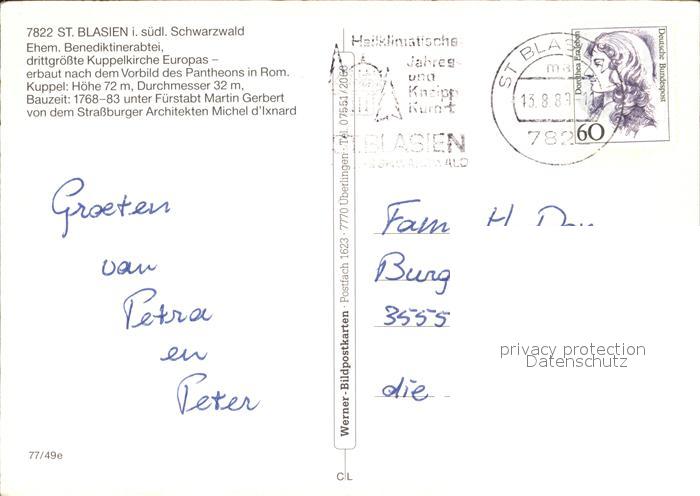 7822 ST. BLASIEN i. südl. Schwarzwald
Ehem. Benediktinerabtei,
drittgrößte Kuppelkirche Europas –
erbaut nach dem Vorbild des Pantheons in Rom.
Kuppel: Höhe 72 m, Durchmesser 32 m,
Bauzeit: 1768–83 unter Fürstabt Martin Gerbert
von dem Straßburger Architekten Michel d'Ixnard
Groeten
van
Petra
en
Peter
77/49e
Werner · Bildpostkarten · Postfach 1623 · 7770 Überlingen · Tel. 07551/
C L
Heilklimatische
Jahres-
und
Kneipp
Kurort
ST. BLASIEN
ST BLAS
13.8.8
782
60
Deutsche Bundespost
Dorothea Erxleben
Fam H
Burg
3555
die
privacy protection
Datenschutz